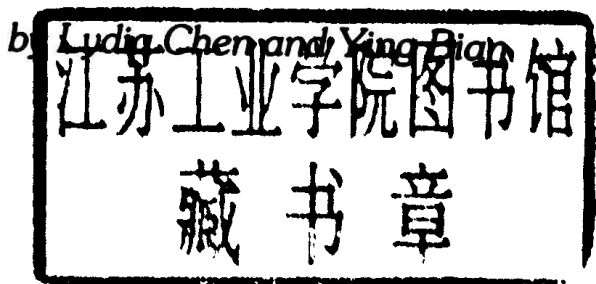 by Lydia Chen and Ying Bian
江苏工业学院图书馆
藏书章